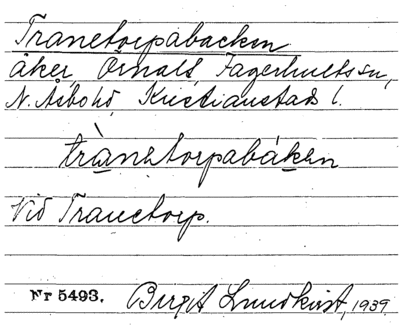 Tranetorpabacken
åker, Örnalt, Fagerhults sn,
N. Åsbo hd, Kristianstads l.
trànetorpabáken
Vid Tranetorp.
Nr 5493. Birgit Lundkvist, 1939.